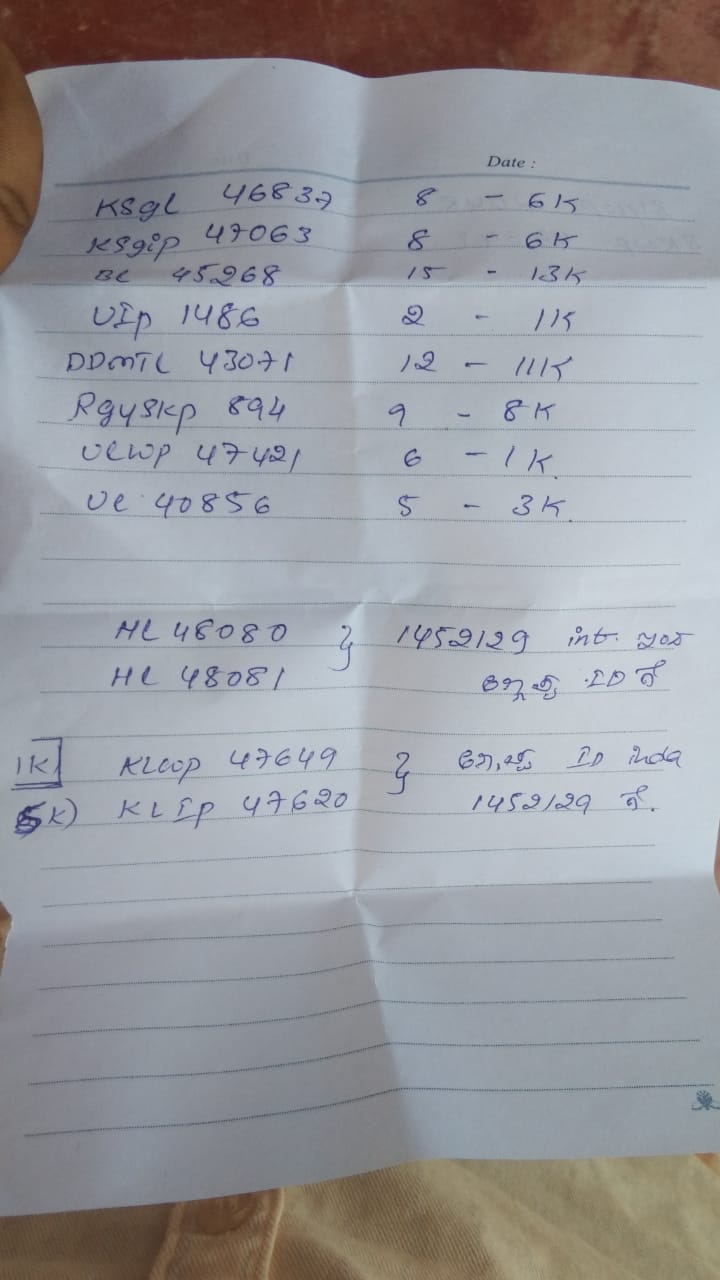 Date :
KSgL 46837 8 - 6K
KSgip 47063 8 - 6K
BL 45268 15 - 13K
UIp 1486 2 - 1K
DDMTL 43071 12 - 11K
RgySKp 894 9 - 8K
47421 6 - 1K
UL 40856 5 - 3K
HL 48080 } 1452129 int.
HL 48081 ID ಗೆ
1K] KLWp 47649 } ID inda
5K) KLIp 47620 1452129 ಗೆ.